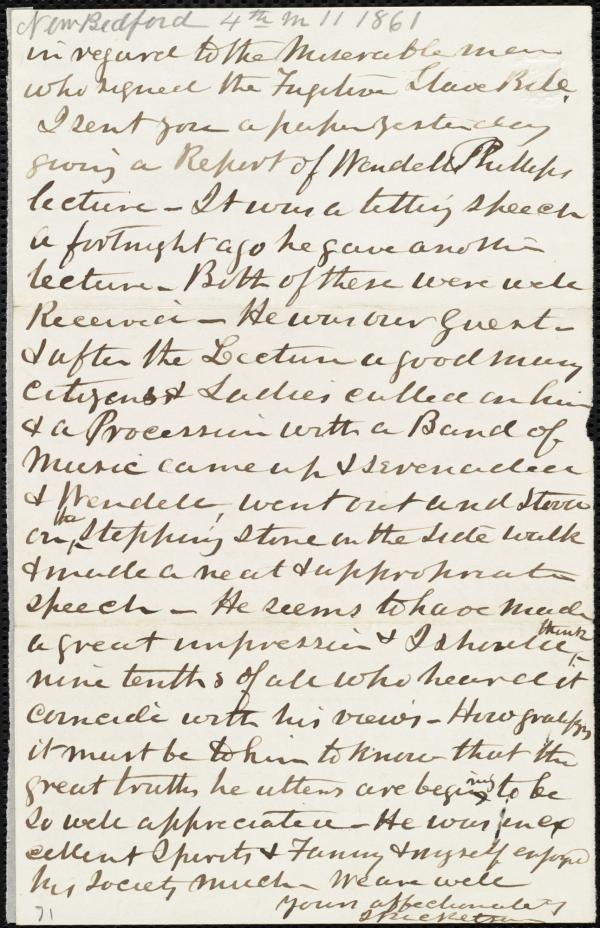 New Bedford 4th m 11 1861
in regard to the Miserable man
who signed the Fugitive Slave Bill.
I sent you a paper yesterday
giving a Report of Wendell Phillips
lecture – It was a telling speech
a fortnight ago he gave another
lecture – Both of these were well
Received – He was our Guest –
& after the Lecture a good many
Citizens & Ladies called on him
& a Procession with a Band of
Music came up & serenaded
& Wendell, went out and stood
on the Stepping Stone on the side walk
& made a neat & appropriate
speech – He seems to have made
a great impression & I should think
nine tenths of all who heard it
coincide with his views – How gratifying
it must be to him to know that the
great truths he utters are beginning to be
so well appreciated – He was in ex
cellent Spirits & Fanny & myself enjoyed
his society much – We are well
Yours affectionately
J Ricketson
71